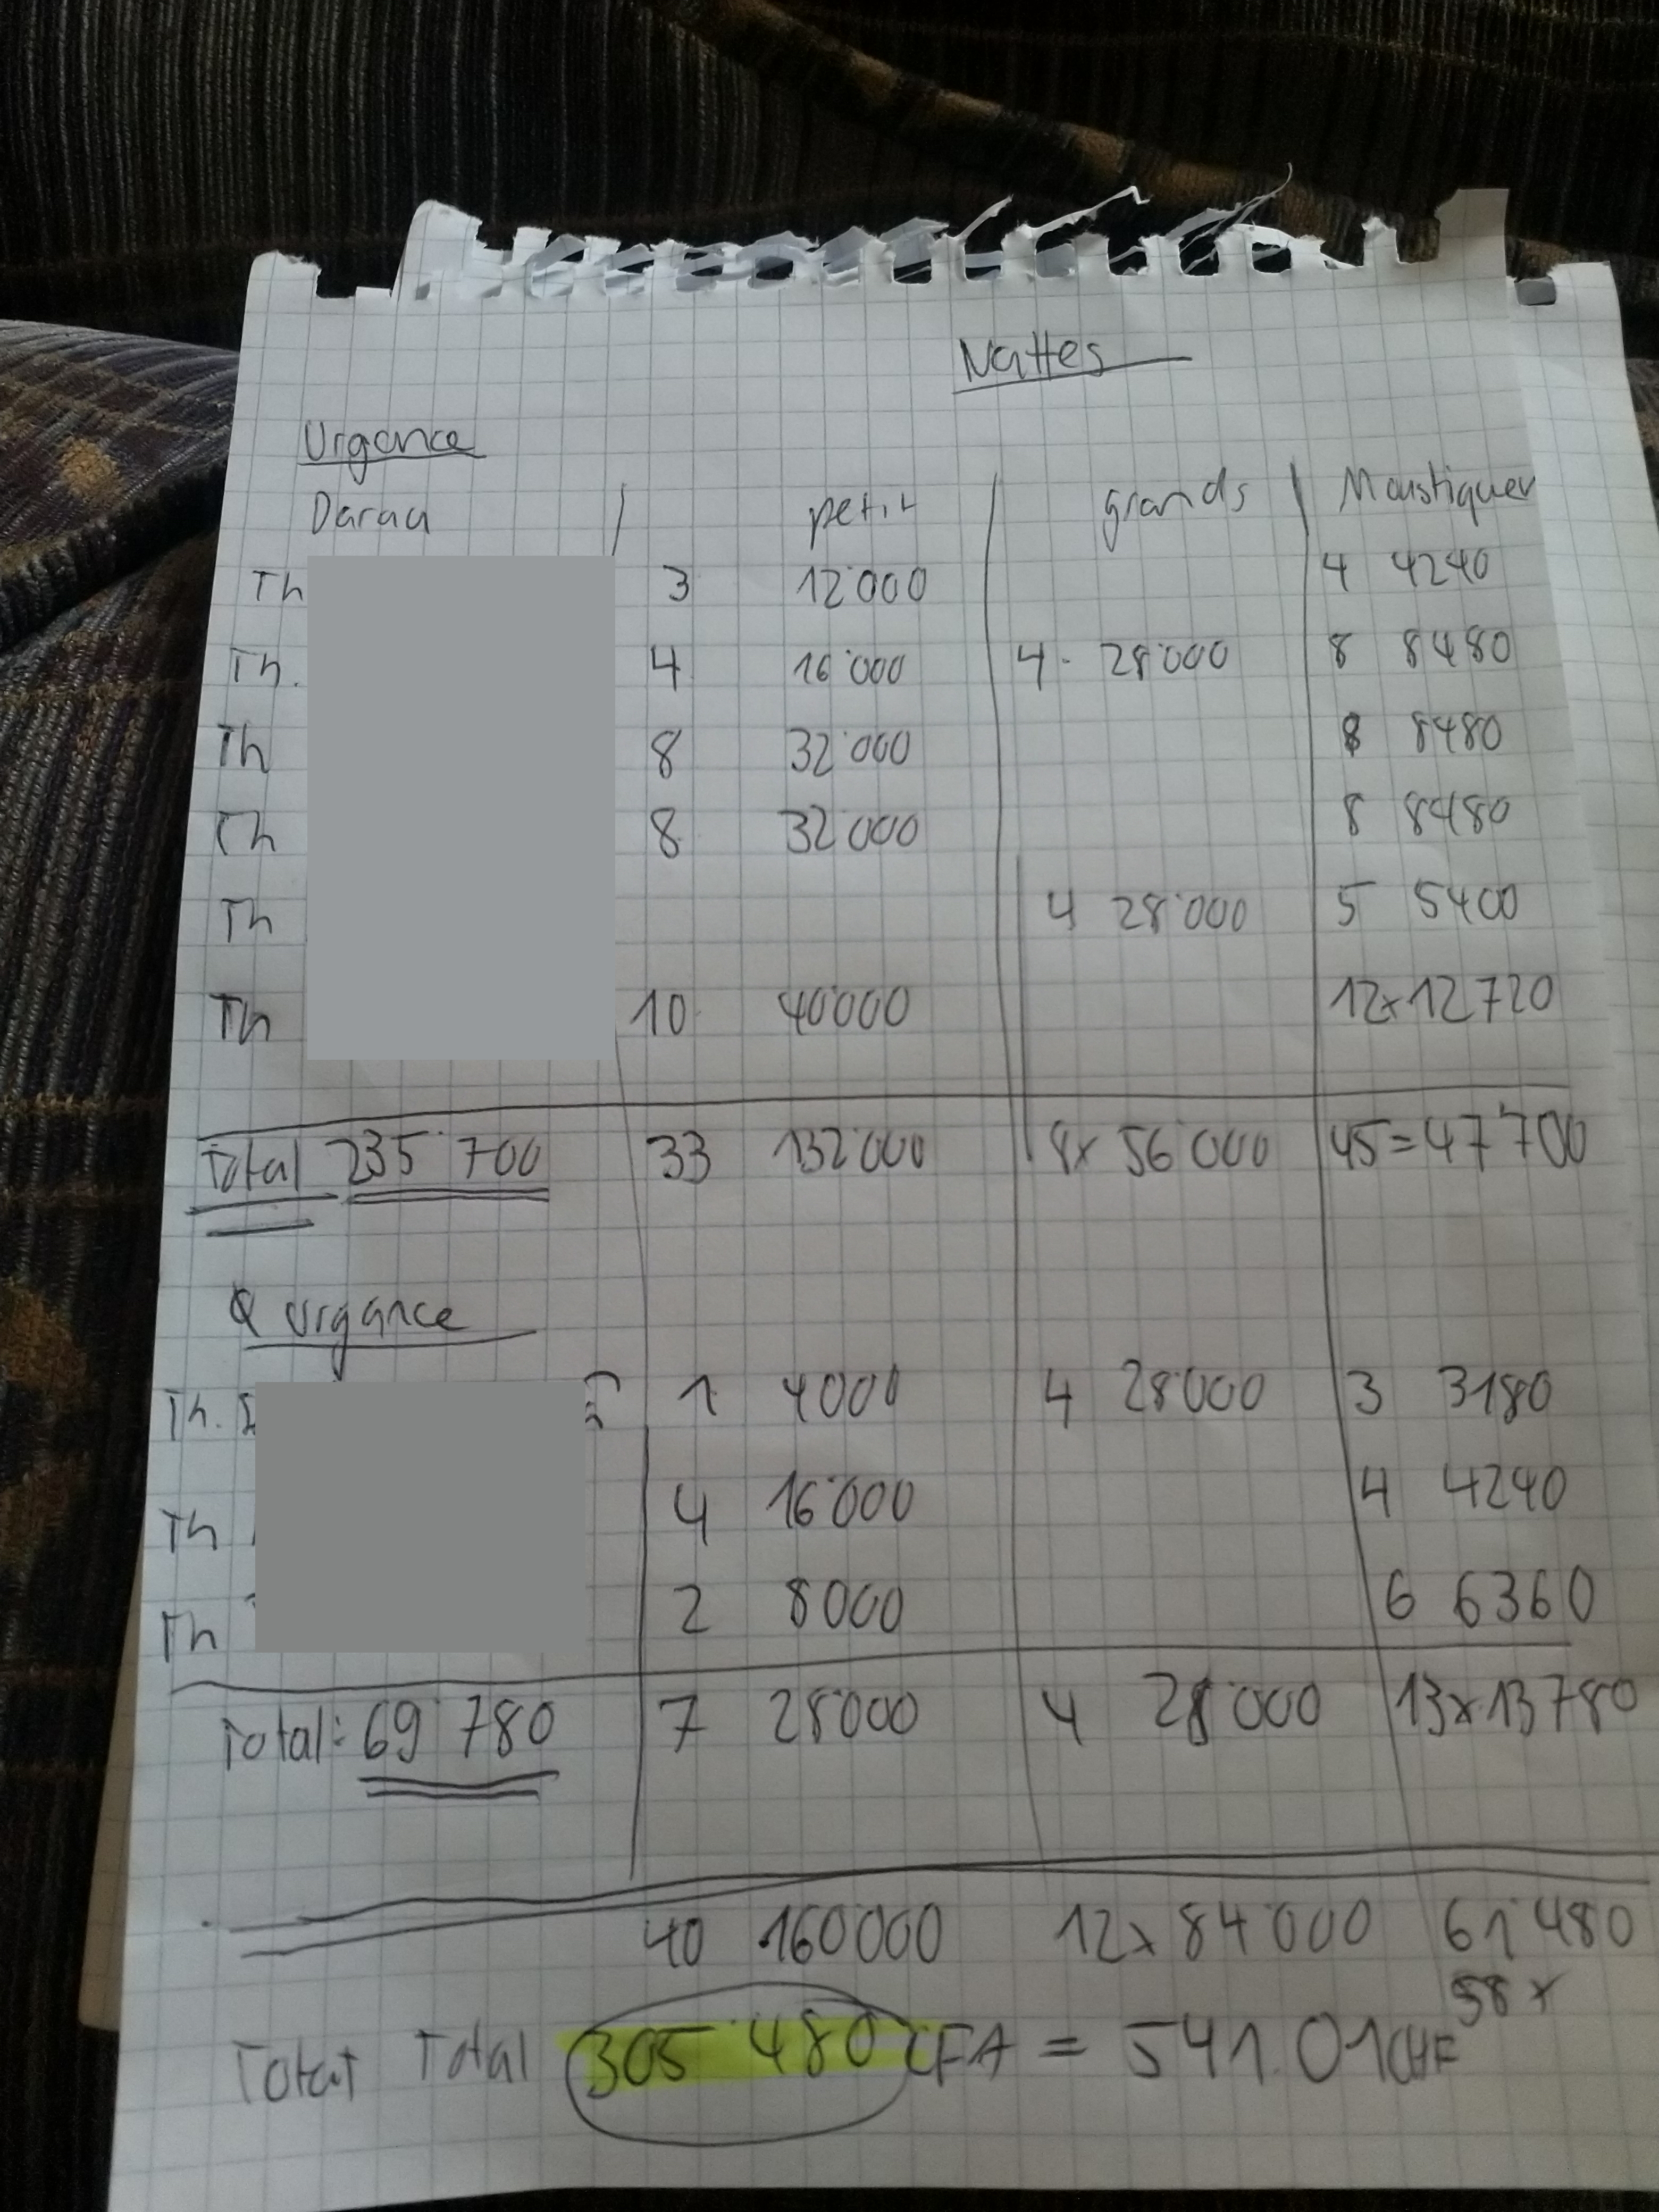 Nattes
Urgance
Daraa petit grands Moustiquer
Th 3 12'000 4 4240
Th. 4 16'000 4 28'000 8 8480
Th 8 32'000 8 8480
Th 8 32'000 8 8480
Th 4 28'000 5 5400
Th 10 40'000 12x 12720
Total 235'700 33 132'000 8x 56'000 45=47'700
urgance
Th. 1 4000 4 28'000 3 3180
Th 4 16'000 4 4240
Th 2 8000 6 6360
Total: 69'780 7 28'000 4 28'000 13x 13780
40 160'000 12x 84'000 61'480
58x
Total Total 305'480 CFA = 541.01 CHF